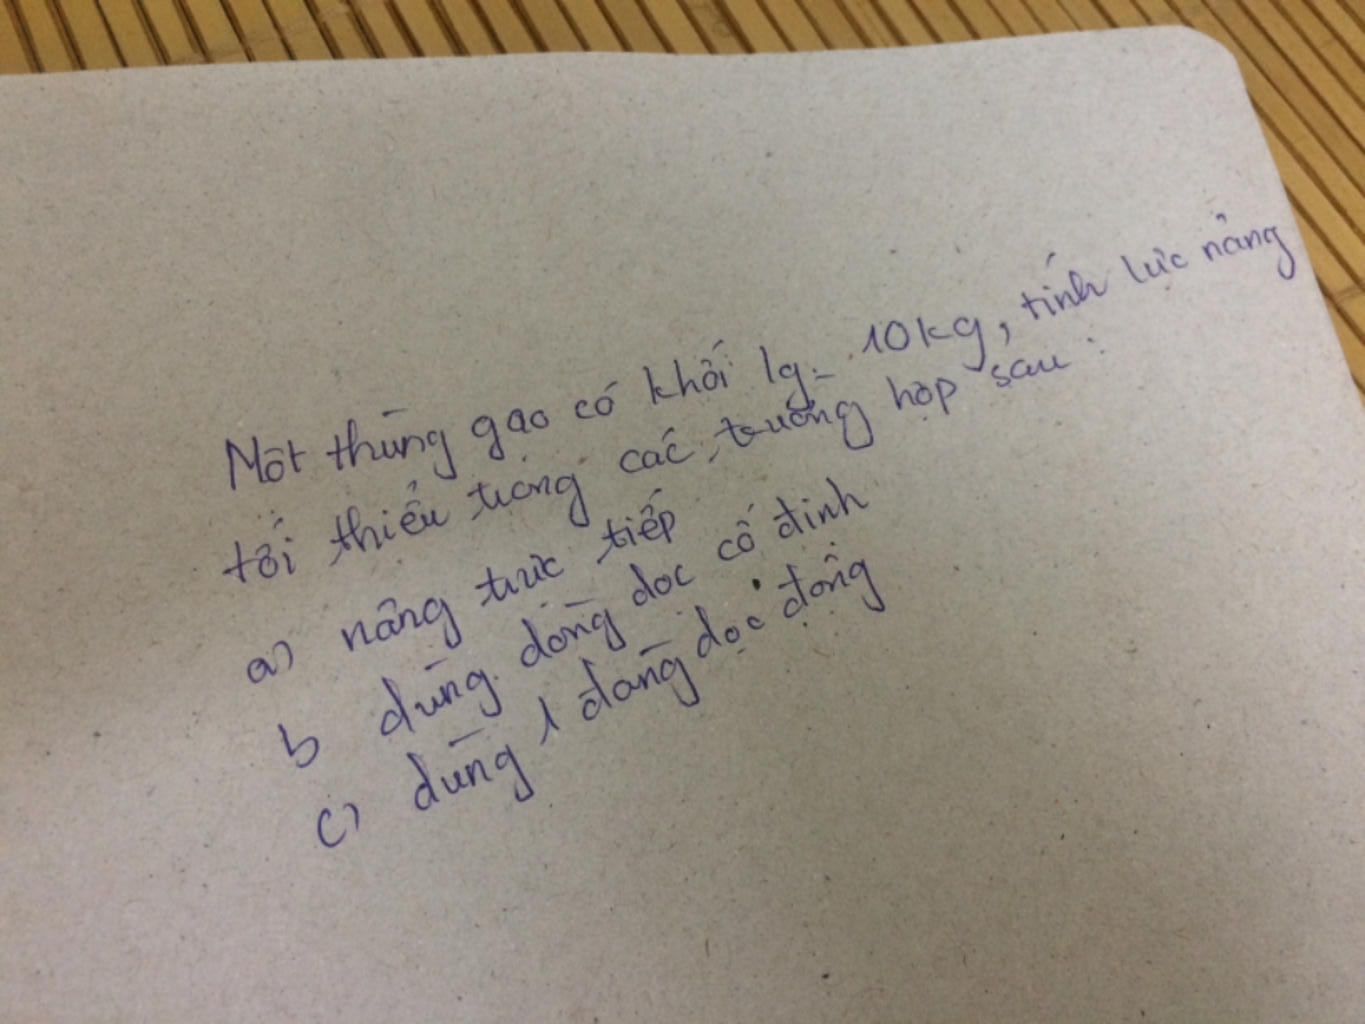 Một thùng gạo có khối lg 10kg, tính lực nâng
tối thiểu trong các trường hợp sau:
a) nâng trực tiếp
b dùng dòng dọc cố định
c) dùng 1 dòng dọc động